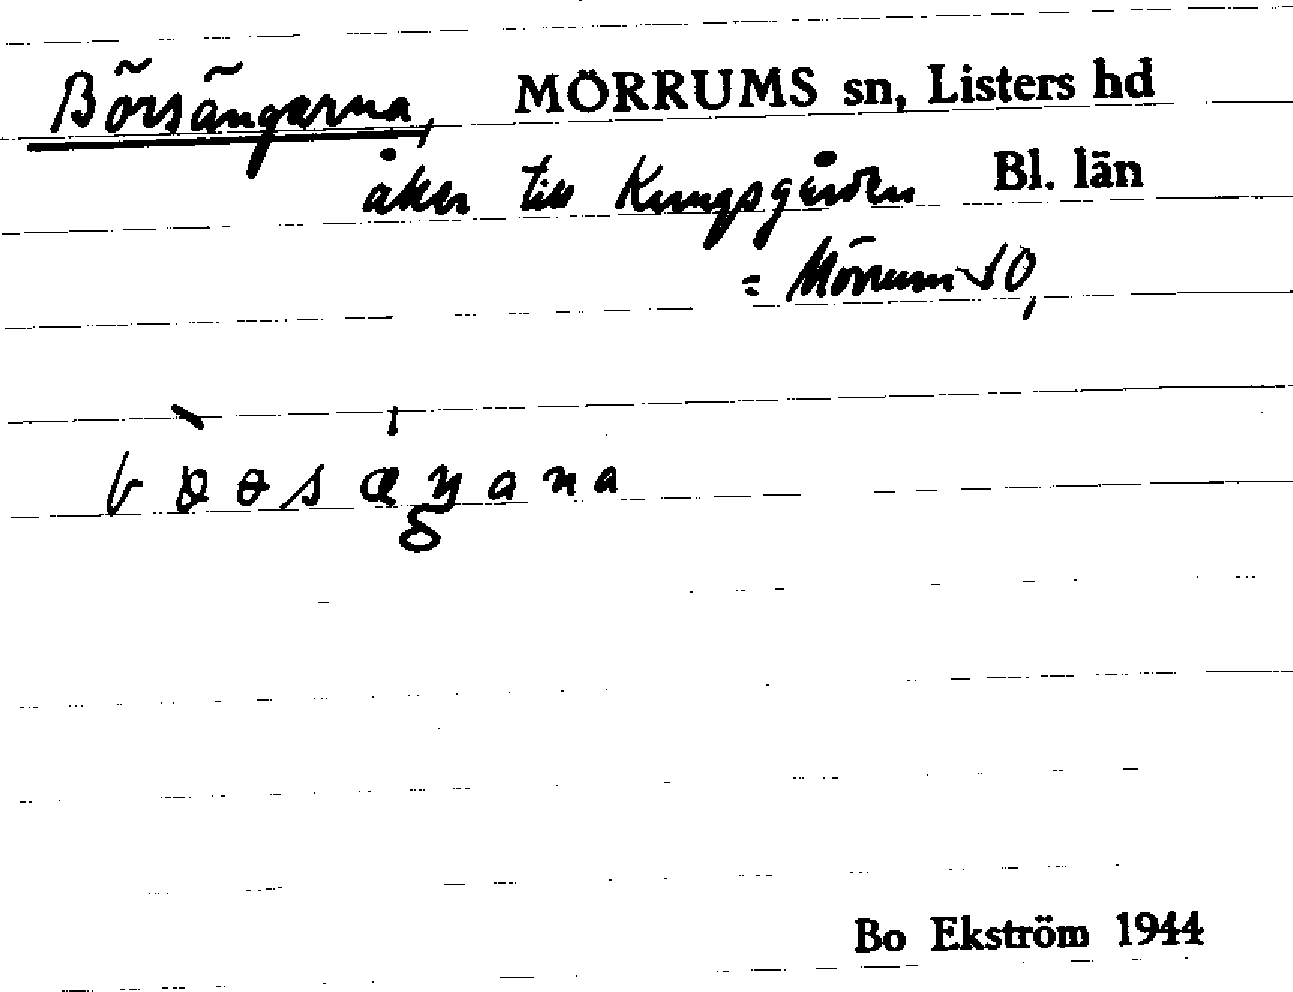 Börsängarna, MÖRRUMS sn, Listers hd
åker till Kungsgården Bl. län
= Mörrum 10,
bɵəsæŋana
Bo Ekström 1944